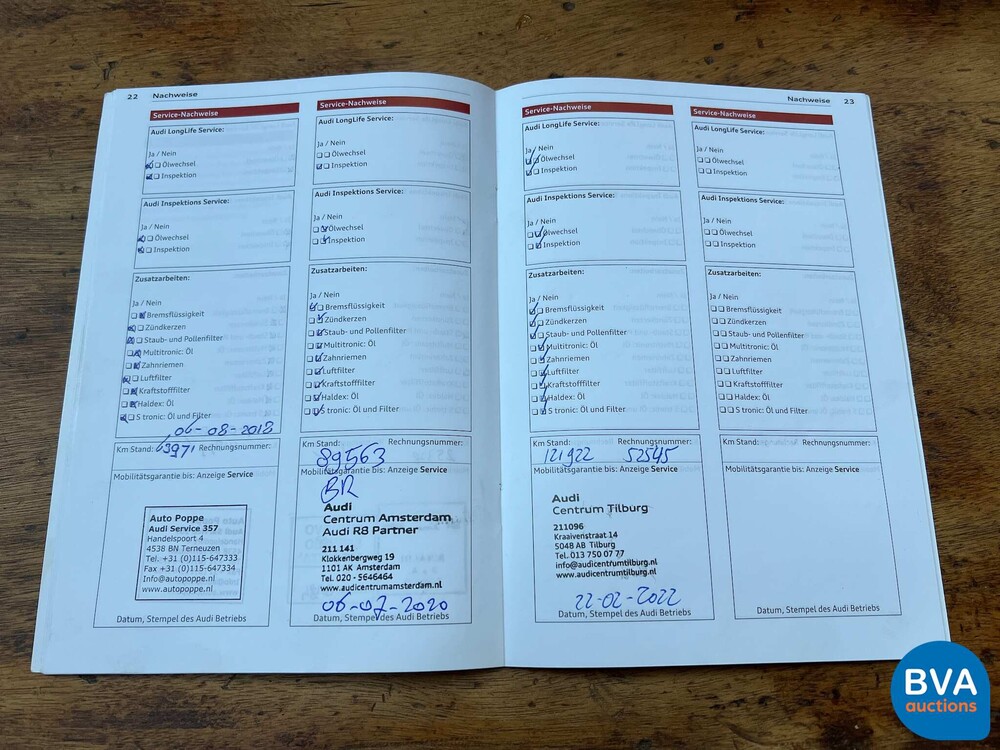 22 Nachweise
Service-Nachweise
Audi LongLife Service:
Ja / Nein
Ölwechsel
Inspektion
Audi Inspektions Service:
Ja / Nein
Ölwechsel
Inspektion
Zusatzarbeiten:
Ja / Nein
Bremsflüssigkeit
Zündkerzen
Staub- und Pollenfilter
Multitronic: Öl
Zahnriemen
Luftfilter
Kraftstofffilter
Haldex: Öl
S tronic: Öl und Filter
06-08-2018
Km Stand: 63971 Rechnungsnummer:
Mobilitätsgarantie bis: Anzeige Service
Auto Poppe
Audi Service 357
Handelspoort 4
4538 BN Terneuzen
Tel. +31 (0)115-647333
Fax +31 (0)115-647334
Info@autopoppe.nl
www.autopoppe.nl
Datum, Stempel des Audi Betriebs
Service-Nachweise
Audi LongLife Service:
Ja / Nein
Ölwechsel
Inspektion
Audi Inspektions Service:
Ja / Nein
Ölwechsel
Inspektion
Zusatzarbeiten:
Ja / Nein
Bremsflüssigkeit
Zündkerzen
Staub- und Pollenfilter
Multitronic: Öl
Zahnriemen
Luftfilter
Kraftstofffilter
Haldex: Öl
S tronic: Öl und Filter
Km Stand: Rechnungsnummer:
89563
Mobilitätsgarantie bis: Anzeige Service
BR
Audi
Centrum Amsterdam
Audi R8 Partner
211 141
Klokkenbergweg 19
1101 AK Amsterdam
Tel. 020 - 5646464
www.audicentrumamsterdam.nl
06-07-2020
Datum, Stempel des Audi Betriebs
Nachweise 23
Service-Nachweise
Audi LongLife Service:
Ja / Nein
Ölwechsel
Inspektion
Audi Inspektions Service:
Ja / Nein
Ölwechsel
Inspektion
Zusatzarbeiten:
Ja / Nein
Bremsflüssigkeit
Zündkerzen
Staub- und Pollenfilter
Multitronic: Öl
Zahnriemen
Luftfilter
Kraftstofffilter
Haldex: Öl
S tronic: Öl und Filter
Km Stand: Rechnungsnummer:
121922 52545
Mobilitätsgarantie bis: Anzeige Service
Audi
Centrum Tilburg
211096
Kraaivenstraat 14
5048 AB Tilburg
Tel. 013 750 07 77
info@audicentrumtilburg.nl
www.audicentrumtilburg.nl
22-02-2022
Datum, Stempel des Audi Betriebs
Service-Nachweise
Audi LongLife Service:
Ja / Nein
Ölwechsel
Inspektion
Audi Inspektions Service:
Ja / Nein
Ölwechsel
Inspektion
Zusatzarbeiten:
Ja / Nein
Bremsflüssigkeit
Zündkerzen
Staub- und Pollenfilter
Multitronic: Öl
Zahnriemen
Luftfilter
Kraftstofffilter
Haldex: Öl
S tronic: Öl und Filter
Km Stand: Rechnungsnummer:
Mobilitätsgarantie bis: Anzeige Service
Datum, Stempel des Audi Betriebs
BVA
auctions